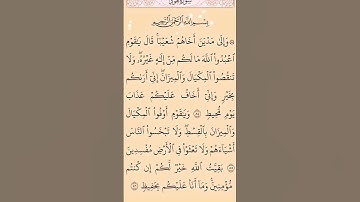 سورة هود
بِسْمِ اللَّهِ الرَّحْمَٰنِ الرَّحِيمِ
۞ وَإِلَىٰ مَدْيَنَ أَخَاهُمْ شُعَيْبًا قَالَ يَٰقَوْمِ
ٱعْبُدُوا۟ ٱللَّهَ مَا لَكُم مِّنْ إِلَٰهٍ غَيْرُهُۥ وَلَا
تَنقُصُوا۟ ٱلْمِكْيَالَ وَٱلْمِيزَانَ إِنِّىٓ أَرَىٰكُم
بِخَيْرٍ وَإِنِّىٓ أَخَافُ عَلَيْكُمْ عَذَابَ
يَوْمٍ مُّحِيطٍ ۝ وَيَٰقَوْمِ أَوْفُوا۟ ٱلْمِكْيَالَ
وَٱلْمِيزَانَ بِٱلْقِسْطِ وَلَا تَبْخَسُوا۟ ٱلنَّاسَ
أَشْيَآءَهُمْ وَلَا تَعْثَوْا۟ فِى ٱلْأَرْضِ مُفْسِدِينَ
۝ بَقِيَّتُ ٱللَّهِ خَيْرٌ لَّكُمْ إِن كُنتُم
مُّؤْمِنِينَ وَمَآ أَنَا۠ عَلَيْكُم بِحَفِيظٍ ۝